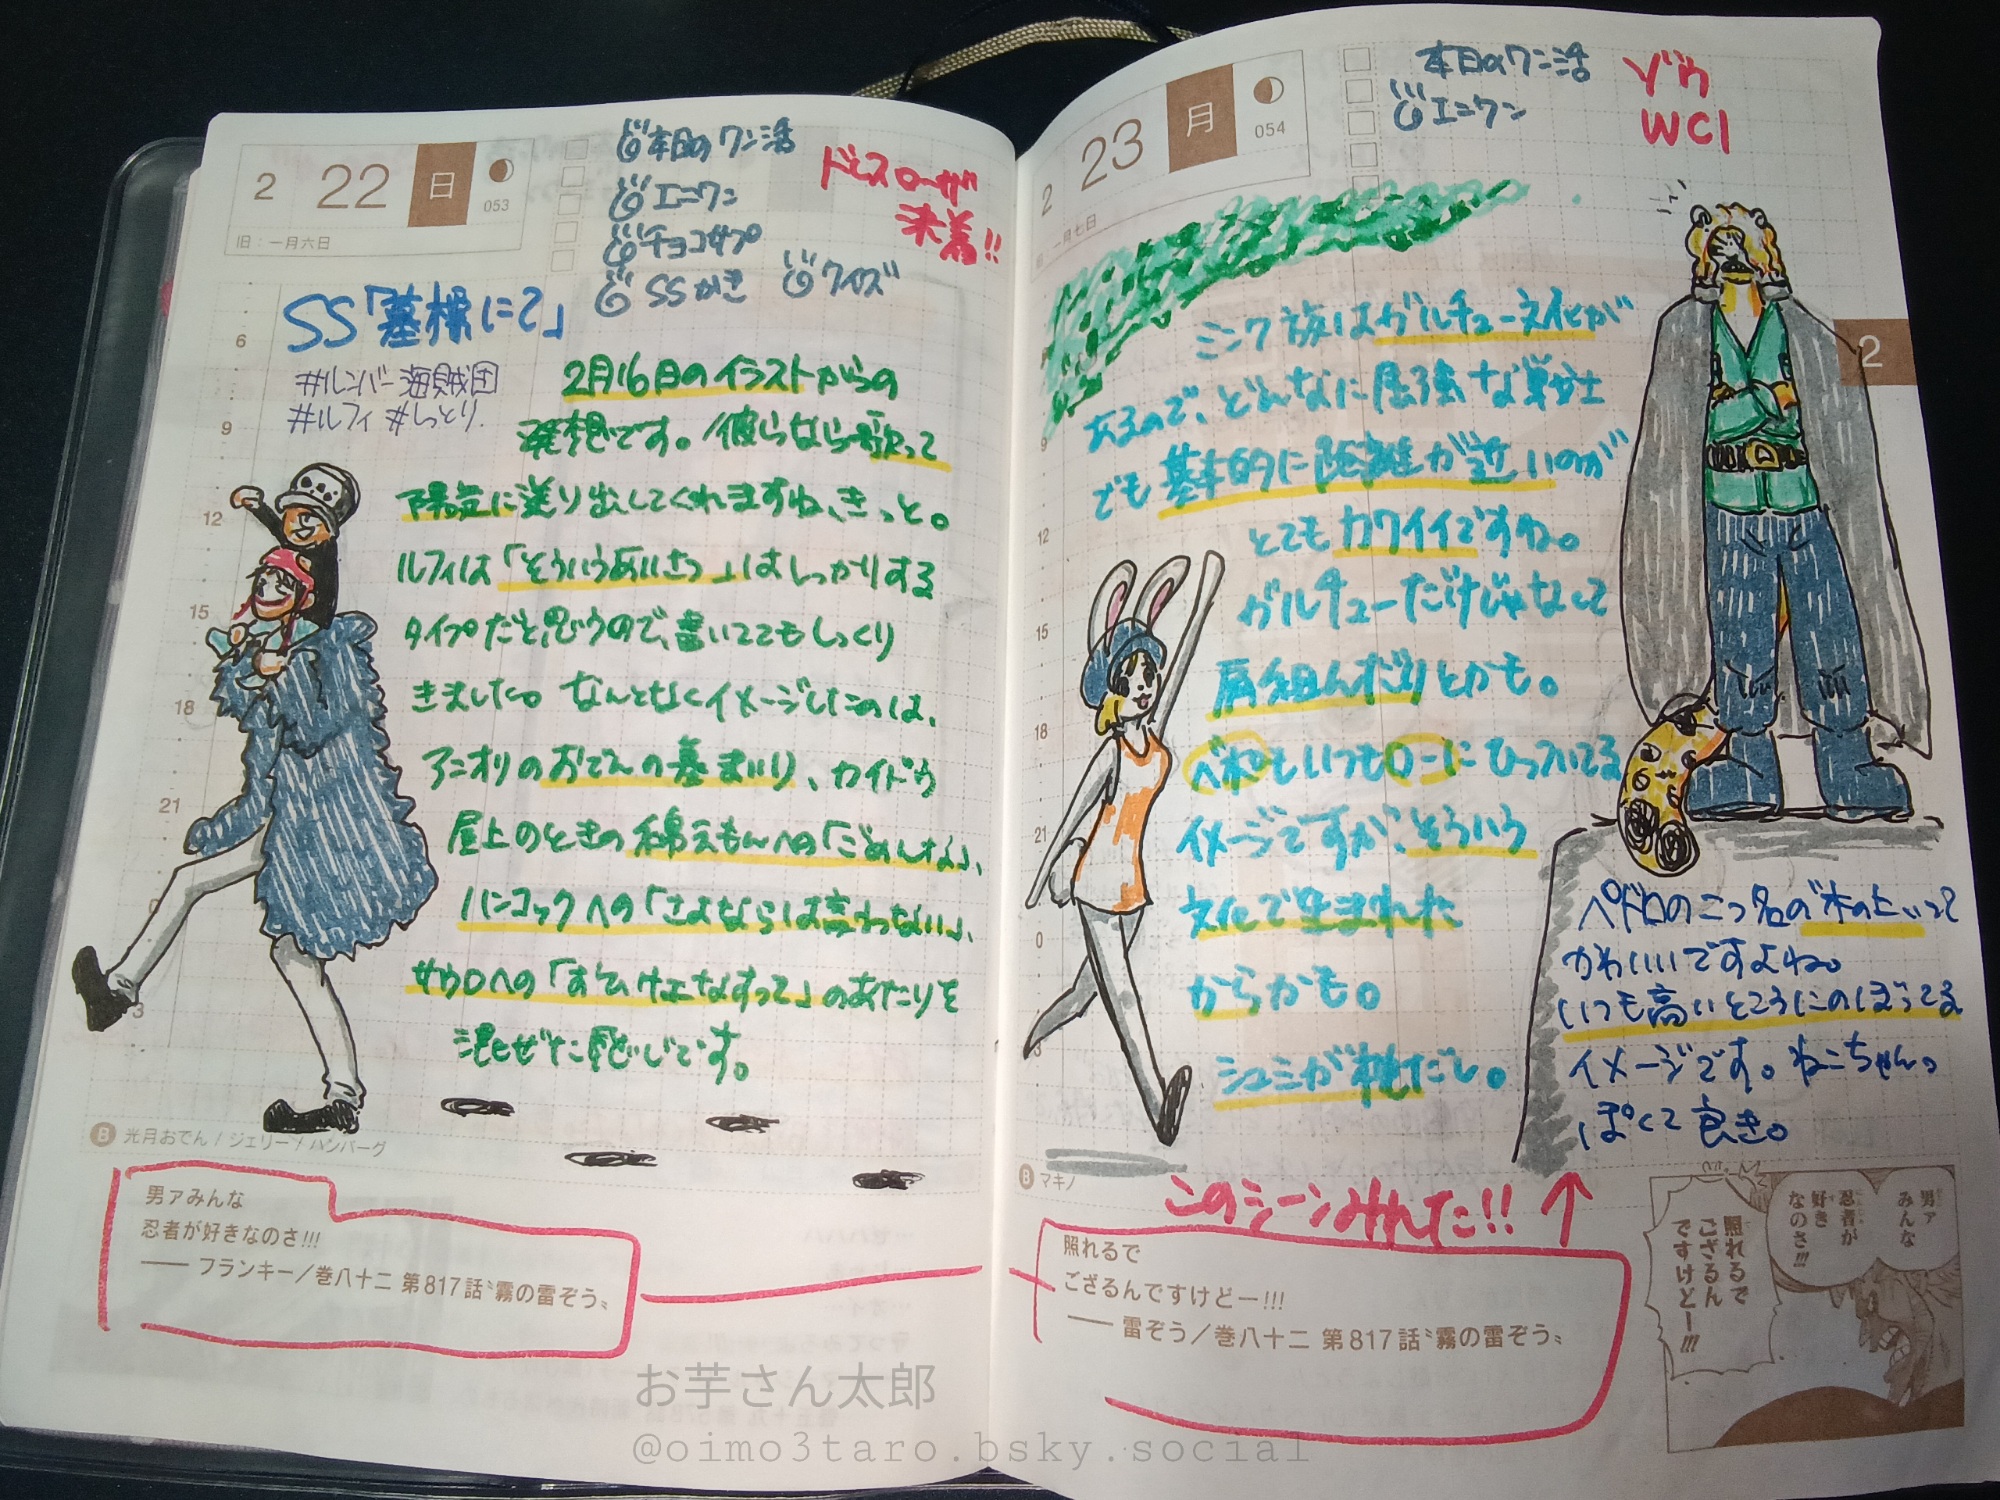 2 22 日
053
旧：一月六日
本日のワン活
エニワン
チョコザップ
SSかき クイズ
ドレスローザ
末着!!
SS「墓標にて」
#ルンバー海賊団
#ルフィ #しっとり
2月16日のイラストからの
発想です。彼らなら歌って
陽気に送り出してくれますね、きっと。
ルフィは「そういうあいさつ」はしっかりする
タイプだと思うので、書いててもしっくり
きました。なんとなくイメージしたのは、
アニオリのおでんの墓まいり、カイドウ
屋上のときの錦えもんへの「ごめんな」、
ハンコックへの「さよならは言わない」、
サウロへの「おひけェなすって」のあたりを
混ぜた感じです。
6
9
12
15
18
21
3
B 光月おでん / ジェリー / ハンバーグ
男ァみんな
忍者が好きなのさ!!!
—— フランキー／巻八十二 第817話〝霧の雷ぞう〟
2 23 月
054
一月七日
本日のワン活
エニワン
ゾウ
WCI
2
ミンク族はガルチュー文化が
あるので、どんなに屈強な戦士
でも基本的に距離が近いのが
とてもカワイイですね。
ガルチューだけじゃなくて
肩組んだりとかも。
ベポもいつもローにひっついてる
イメージですが、そういう
文化で生まれた
からかも。
シュミが桃だし。
9
12
15
18
21
0
3
ペドロの二つ名の"木の上"いって
かわいいですよね。
いつも高いところにのぼってる
イメージです。ねこちゃんっ
ぽくて良き。
B マキノ
このシーンみれた!! ↑
照れるで
ござるんですけどー!!!
—— 雷ぞう／巻八十二 第817話〝霧の雷ぞう〟
男ァ
みんな
忍者が
好き
なのさ!!!
照れるで
ござるん
ですけどー!!!
お芋さん太郎
@oimo3taro.bsky.social